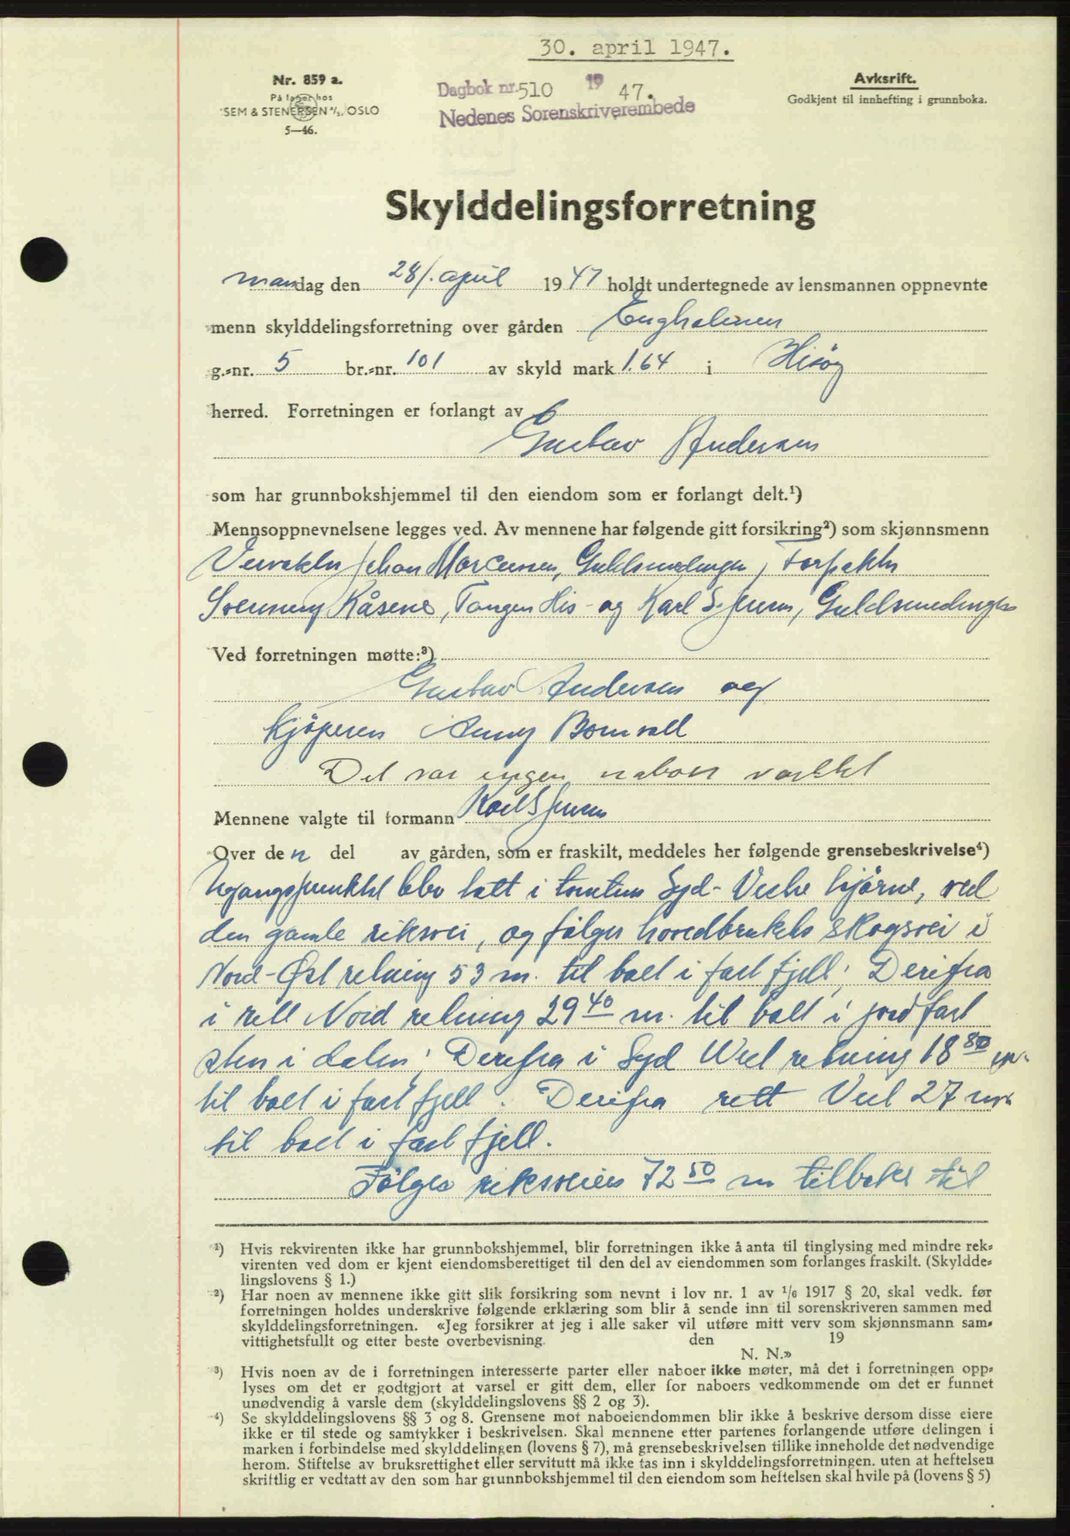 30. april 1947.
Nr. 859 a.
På lager hos
SEM & STENERSEN A/S, OSLO
5—46.
Dagbok nr. 510 1947.
Nedenes Sorenskriverembede
Avkskrift.
Godkjent til innhefting i grunnboka.
Skylddelingsforretning
mandag den 28/. april 1947 holdt undertegnede av lensmannen oppnevnte
menn skylddelingsforretning over gården Engholmen
g.-nr. 5 br.-nr. 101 av skyld mark 1.64 i Hisøy
herred. Forretningen er forlangt av
Gustav Andersen
som har grunnbokshjemmel til den eiendom som er forlangt delt.¹)
Mennsoppnevnelsene legges ved. Av mennene har følgende gitt forsikring²) som skjønnsmenn
Johan Marcussen, Guldsmedengen, Forpakter
Kåsene, Tangen His - og Karl S. Jensen, Guldsmedengen
Ved forretningen møtte:³)
Gustav Andersen og
kjøperen Anny Bomvall
Det var ingen naboer varslet
Mennene valgte til formann Karl S Jensen
Over den del av gården, som er fraskilt, meddeles her følgende grensebeskrivelse⁴)
Utgangspunktet blev satt i tomtens Syd-Vestre hjørne, ved
den gamle riksvei, og følger hovedbrukets skogsvei i
Nord-Øst retning 53 m. til bolt i fast fjell; Derifra
i rett Nord retning 29 40 m. til bolt i jordfast
sten i dalen; Derifra i Syd Vest retning 18 80 m.
til bolt i fast fjell. Derifra rett Vest 27 m.
til bolt i fast fjell.
Følger riksveien 72 50 m tilbake til
¹) Hvis rekvirenten ikke har grunnbokshjemmel, blir forretningen ikke å anta til tinglysing med mindre rek-
virenten ved dom er kjent eiendomsberettiget til den del av eiendommen som forlanges fraskilt. (Skyldde-
lingslovens § 1.)
²) Har noen av mennene ikke gitt slik forsikring som nevnt i lov nr. 1 av 1/6 1917 § 20, skal vedk. før
forretningen holdes underskrive følgende erklæring som blir å sende inn til sorenskriveren sammen med
skylddelingsforretningen. «Jeg forsikrer at jeg i alle saker vil utføre mitt verv som skjønnsmann sam-
vittighetsfullt og etter beste overbevisning. den 19
N. N.»
³) Hvis noen av de i forretningen interesserte parter eller naboer ikke møter, må det i forretningen opp-
lyses om det er godtgjort at varsel er gitt dem, eller for naboers vedkommende om det er funnet
unødvendig å varsle dem (skylddelingslovens §§ 2 og 3).
⁴) Se skylddelingslovens §§ 3 og 8. Grensene mot naboeiendommen blir ikke å beskrive dersom disse eiere
ikke er til stede og samtykker i beskrivelsen. Skal mennene etter partenes forlangende utføre delingen i
marken i forbindelse med skylddelingen (lovens § 7), må grensebeskrivelsen tillike inneholde det nødvendige
herom. Stiftelse av bruksrettighet eller servitutt må ikke tas inn i skylddelingsforretningen, uten at heftelsen
skriftlig er vedtatt av den som har grunnbokshjemmel til den eiendom som heftelsen skal hvile på (lovens § 5)